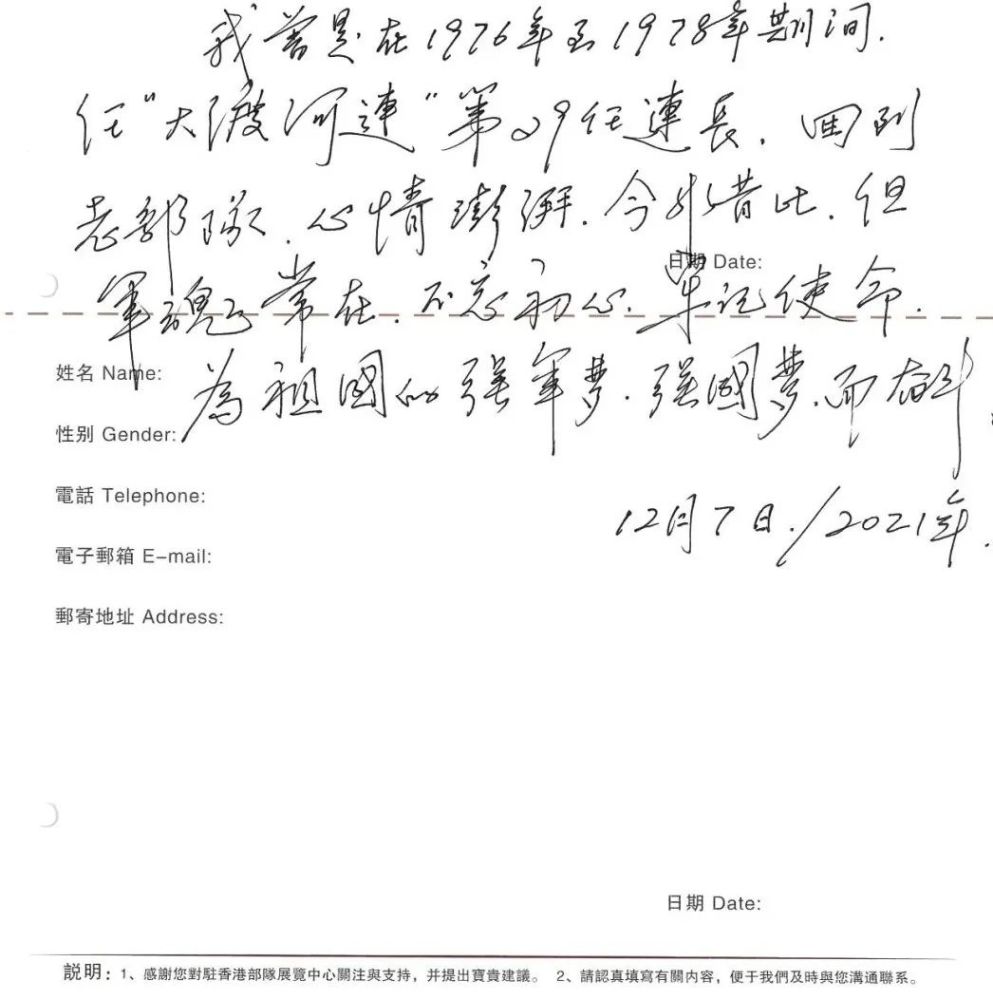 我曾是在1976年至1978年期间.
任"大渡河連"第29任連長. 回到
老部隊. 心情澎湃. 今非昔比. 但
日期 Date:
軍魂常在. 不忘初心. 牢记使命.
姓名 Name:
為祖國的强軍夢. 强國夢. 而奋斗.
性別 Gender:
電話 Telephone:
12月7日./2021年.
電子郵箱 E-mail:
郵寄地址 Address:
日期 Date:
説明：1、感謝您對駐香港部隊展覽中心關注與支持，并提出寶貴建議。 2、請認真填寫有關内容，便于我們及時與您溝通聯系。